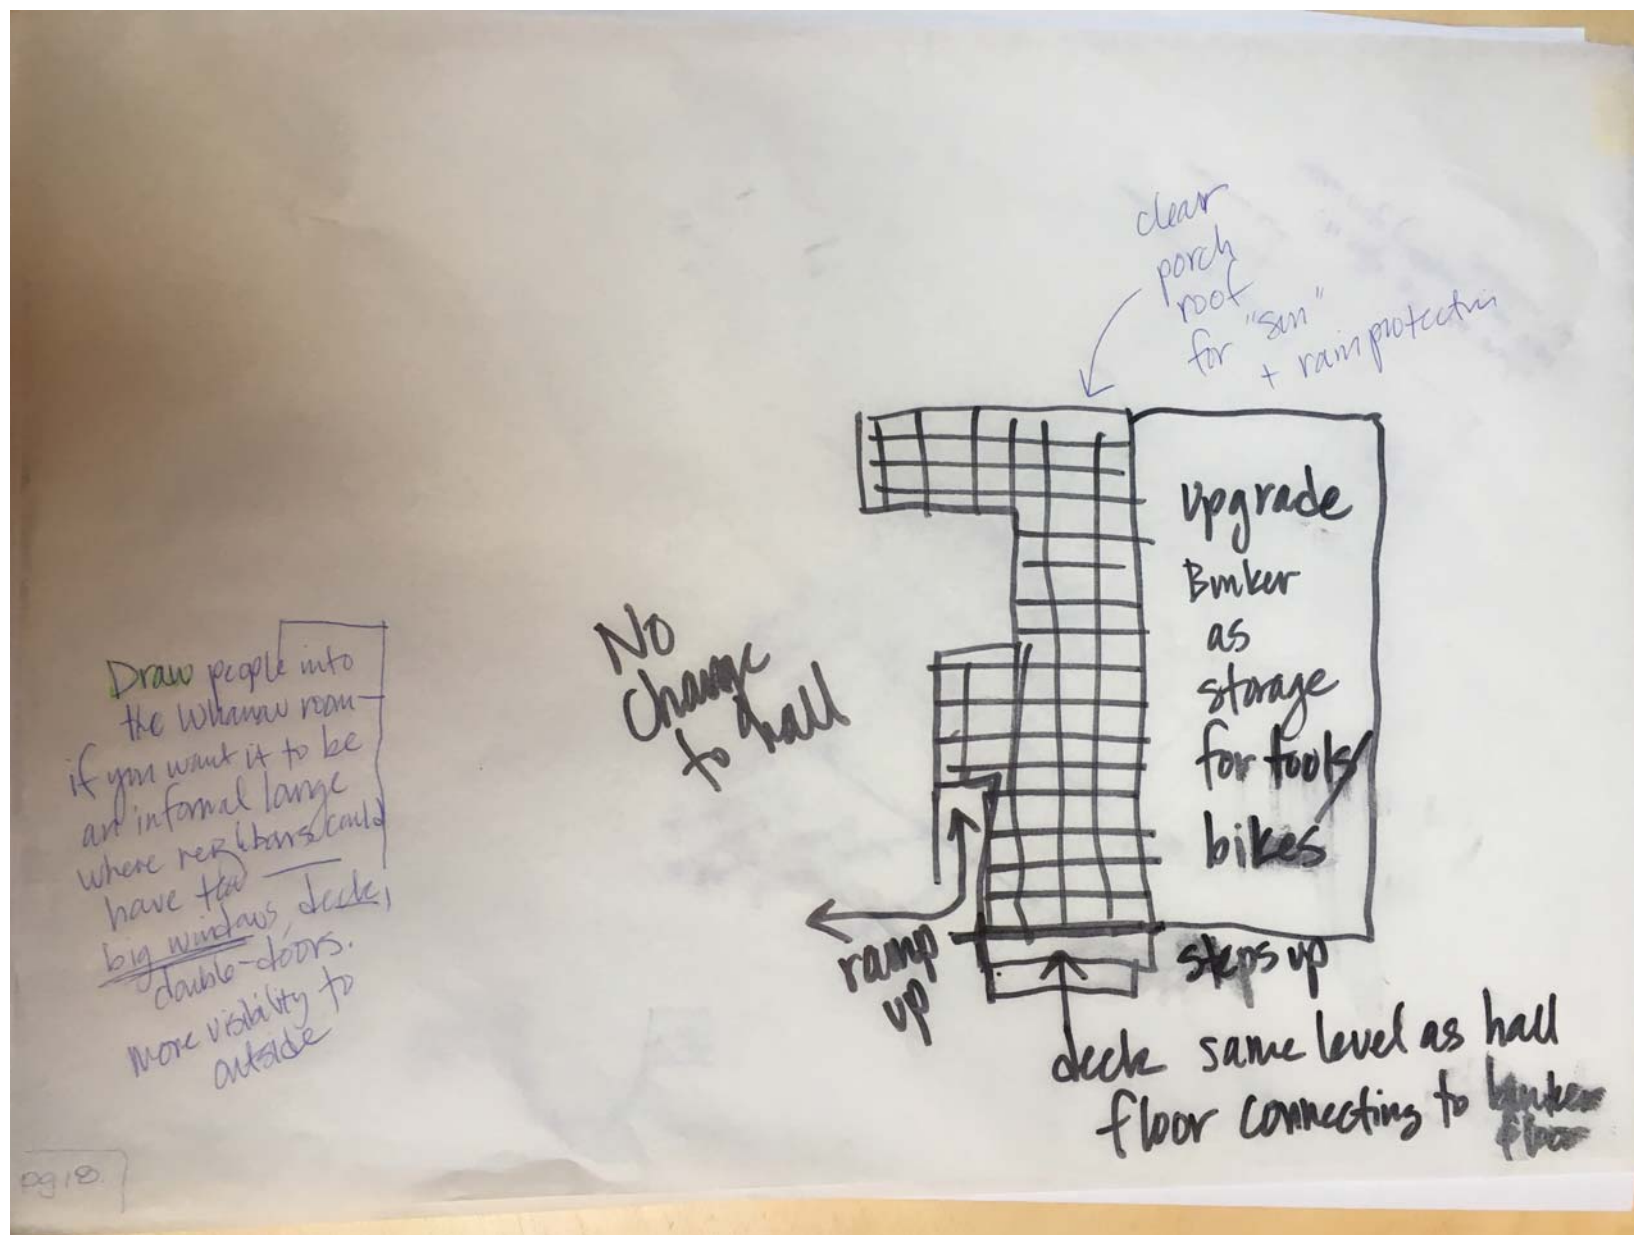 clear
porch
roof
for "sun"
+ rain protection
upgrade
Bunker
as
storage
for tools/
bikes
No
change
to hall
Draw people into
the Whanau room
if you want it to be
an informal lounge
where neighbors could
have tea
big windows, deck,
double-doors.
More visibility to
outside
ramp
up
steps up
deck same level as hall
floor connecting to bunker
floor
pg 18